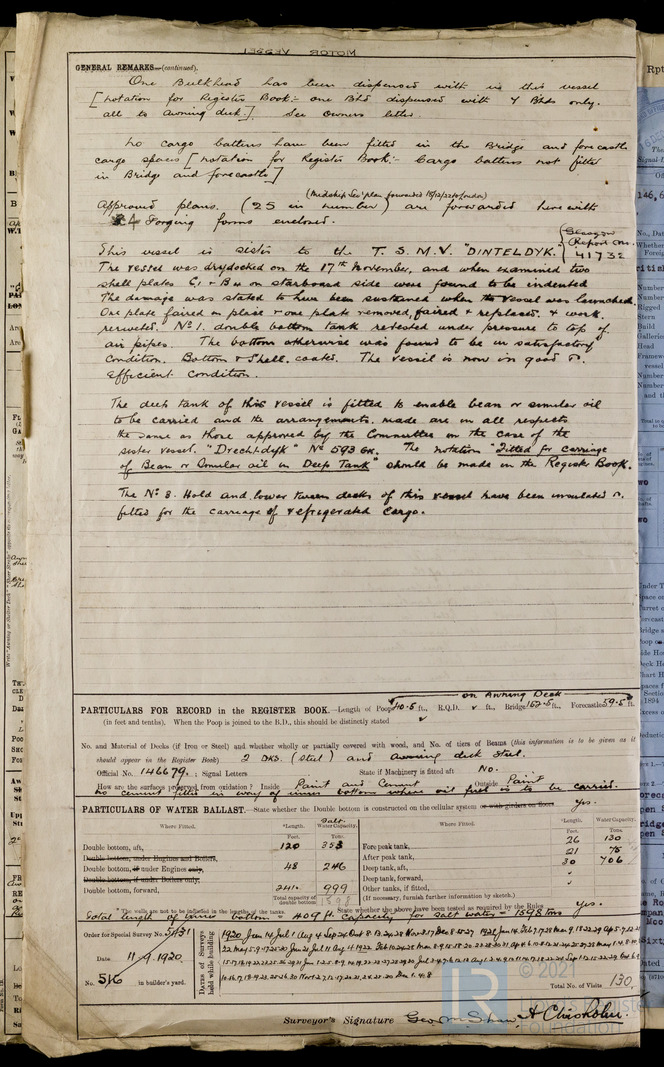 MOTOR VESSEL
GENERAL REMARKS—(continued).
One Bulkhead has been dispensed with in this vessel
[notation for Register Book:- one Bhd dispensed with 7 Bhds only.
all to awning deck.]. See Owners letter.
No cargo battens have been fitted in the Bridge and forecastle
cargo spaces [notation for Register Book:- Cargo battens not fitted
in Bridge and forecastle]
Approved plans. (25 in number) are forwarded herewith
Forging forms enclosed.
This vessel is sister to the T. S. M. V. "DINTELDYK." {Glasgow Report No. 41732
The vessel was drydocked on the 17th November, and when examined two
shell plates C, & B on starboard side were found to be indented
The damage was stated to have been sustained when the vessel was launched.
One plate faired in place & one plate removed, faired & replaced. & work.
reriveted. No 1. double bottom tank retested under pressure to top of
air pipes. The bottom otherwise was found to be in satisfactory
condition. Bottom & Shell. coated. The vessel is now in good &
efficient condition.
The deep tank of this vessel is fitted to enable bean or similar oil
to be carried and the arrangements. made are in all respects
the same as those approved by the Committee in the case of the
sister vessel. "Drechtdyk" No 593 The notation "Fitted for carriage
of Bean or Similar oil in Deep Tank" should be made in the Register Book.
The No 3. Hold and lower tween decks of this vessel have been insulated &
fitted for the carriage of refrigerated cargo.
on Awning Deck
PARTICULARS FOR RECORD in the REGISTER BOOK.—Length of Poop 40.5 ft., R.Q.D. ft., Bridge ft., Forecastle 59.5 ft.
(in feet and tenths). When the Poop is joined to the B.D., this should be distinctly stated
No. and Material of Decks (if Iron or Steel) and whether wholly or partially covered with wood, and No. of tiers of Beams (this information is to be given as it
should appear in the Register Book) 2 DKS. (steel) and awning deck steel.
Official No. 146679. ; Signal Letters State if Machinery is fitted aft No.
How are the surfaces preserved from oxidation? Inside Paint and Cement Outside Paint
no cement fitted in way of inner bottom where oil fuel is to be carried.
PARTICULARS OF WATER BALLAST.—State whether the Double bottom is constructed on the cellular system or with girders on floors yes.
Where Fitted. *Length. Salt. Water Capacity. Where Fitted. *Length. Water Capacity.
Feet. Tons. Feet. Tons.
Double bottom, aft, 120 353 Fore peak tank, 26 130
Double bottom, under Engines and Boilers, After peak tank, 21 75
Double bottom, if under Engines only, 48 246 Deep tank, aft, 30 706
Double bottom, if under Boilers only, Deep tank, forward,
Double bottom, forward, 241. 999 Other tanks, if fitted,
Total capacity of double bottom 1598 (If necessary, furnish further information by sketch.)
*The wells are not to be included in the lengths of the tanks. State whether the above have been tested as required by the Rules yes.
total length of inner bottom = 409 ft. Capacity for Salt water = 1598 tons
Order for Special Survey No. 5131
Date 11/9.1920.
No. 516 in builder's yard.
Dates of Surveys held while building
Total No. of Visits 130.
Surveyor's Signature Geo. M. Shaw, A Chisholm.
© 2021
LR
Lloyd's Register
Foundation